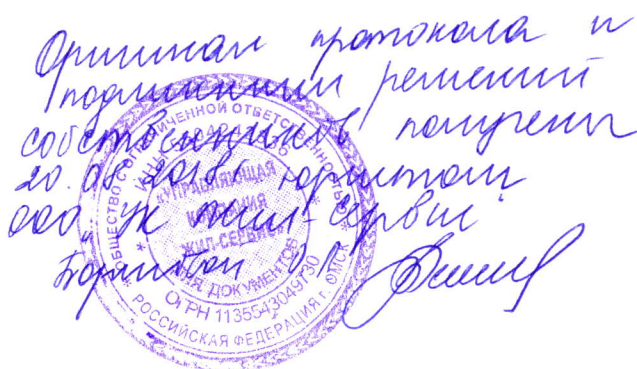 Оригинал протокола и
подлинники решений
собственников получены
20.08.2018г юристом
ООО "УК Жил-Сервис"
ОБЩЕСТВО С ОГРАНИЧЕННОЙ ОТВЕТСТВЕННОСТЬЮ
«УПРАВЛЯЮЩАЯ
КОМПАНИЯ
ЖИЛ-СЕРВИС»
ДЛЯ ДОКУМЕНТОВ
ОГРН 1135543049730
РОССИЙСКАЯ ФЕДЕРАЦИЯ г. ОМСК